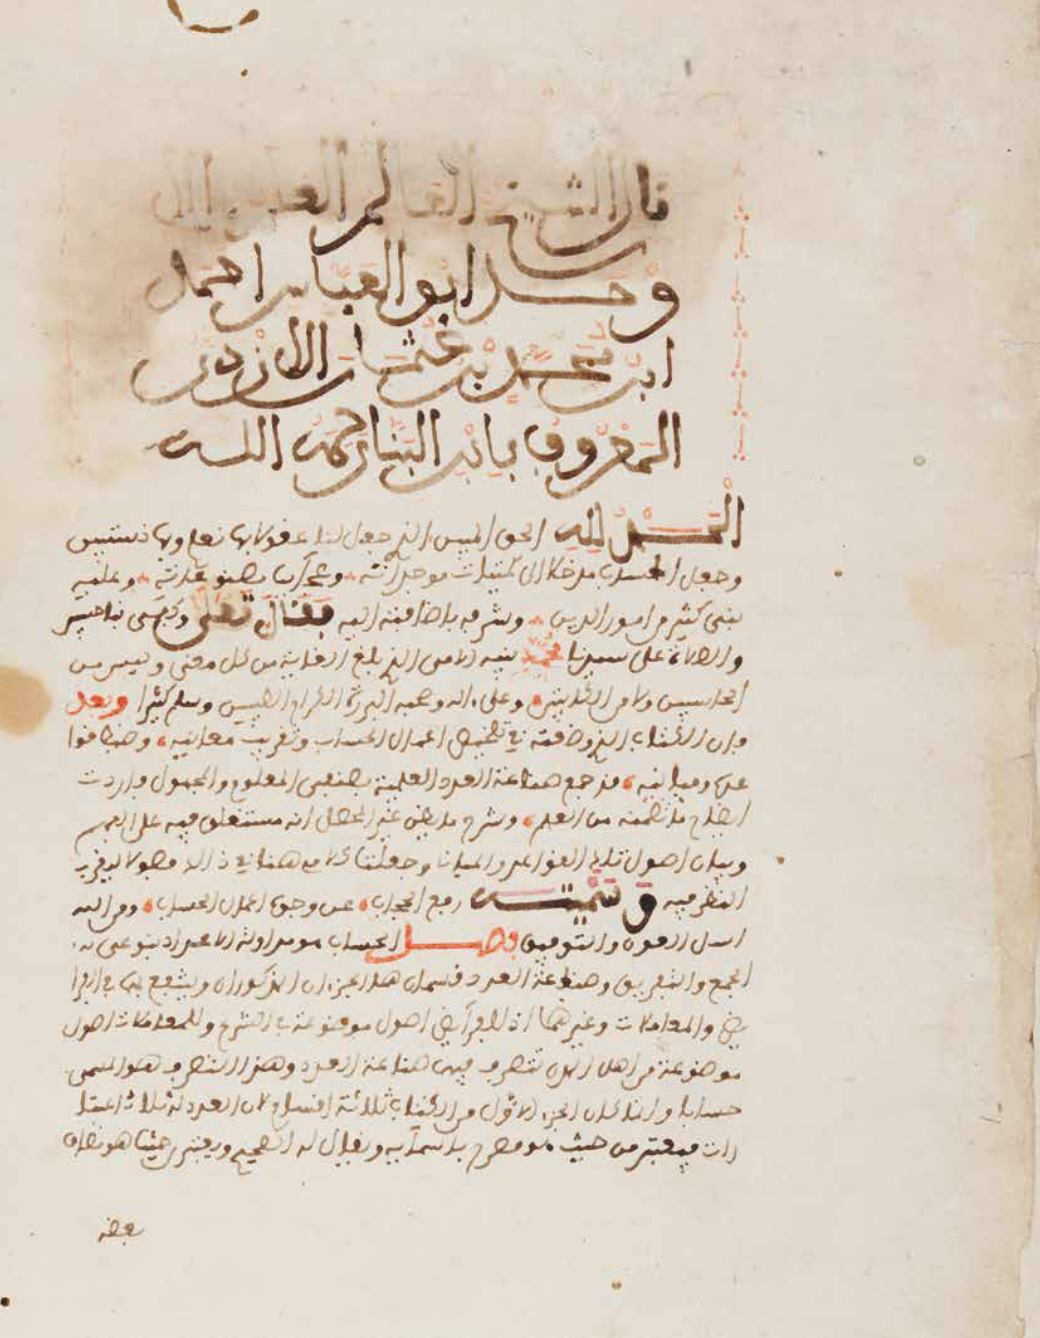 قال الشيخ العالم
وحيد ابو العباس احمد
ابن محمد بن عثمان الازدي
المعروف بابن البنا رحمه الله
الحمد لله الحق المبين الذي جعل لنا عقولا بها نعلم وبها نستبين
وجعل الحساب مدخلا الى كميات موجداته وعلمه
نبي كثير من امور الدين وشرفه باضافته اليه فقال تعالى وكفى بنا حاسبين
والصلاة على سيدنا محمد نبيه الامي الذي بلغ الغاية من كل معنى وليس من
الحاسبين ولا من الكاتبين وعلى اله وصحبه البررة الكرام الطيبين وسلم كثيرا وبعد
فان الكتاب الذي وضعته في تلخيص اعمال الحساب وتقريب معانيه وضبط قوا
عده ومبانيه قد جمع صناعة العدد العلمية بصنفي المعلوم والمجهول فاردت
ايضاح ما تضمنه من العلم وشرح ما يظن غير المحصل انه مستغلق فيه على الفهم
وبيان اصول تلك القواعد والمباني وجعلنا كلامه هنا في ذلك فصولا ليقرب
النظر فيه وسميته رفع الحجاب عن وجوه اعمال الحساب ومن الله
اسل العون والتوفيق فصل الحساب مزاولة الاعداد بنوعي
الجمع والتفريق وصناعة العدد قسمان هذا الجزءان المذكوران وينتفع بها في الفرا
يض والمعاملات وغيرهما اذ للفرايض اصول موضوعة في الشرع وللمعاملات اصول
موضوعة من اهل تتصرف فيها صناعة العدد وهذا التصرف هو المسمى
حسابا وانما كان الجزء الاول من الكتاب ثلاثة اقسام لان العدد له ثلاث اعتبا
رات فيعتبر من حيث هو مصرح باسمايه ويقال له الصحيح ويعتبر من حيث هو مضاف
بعضه